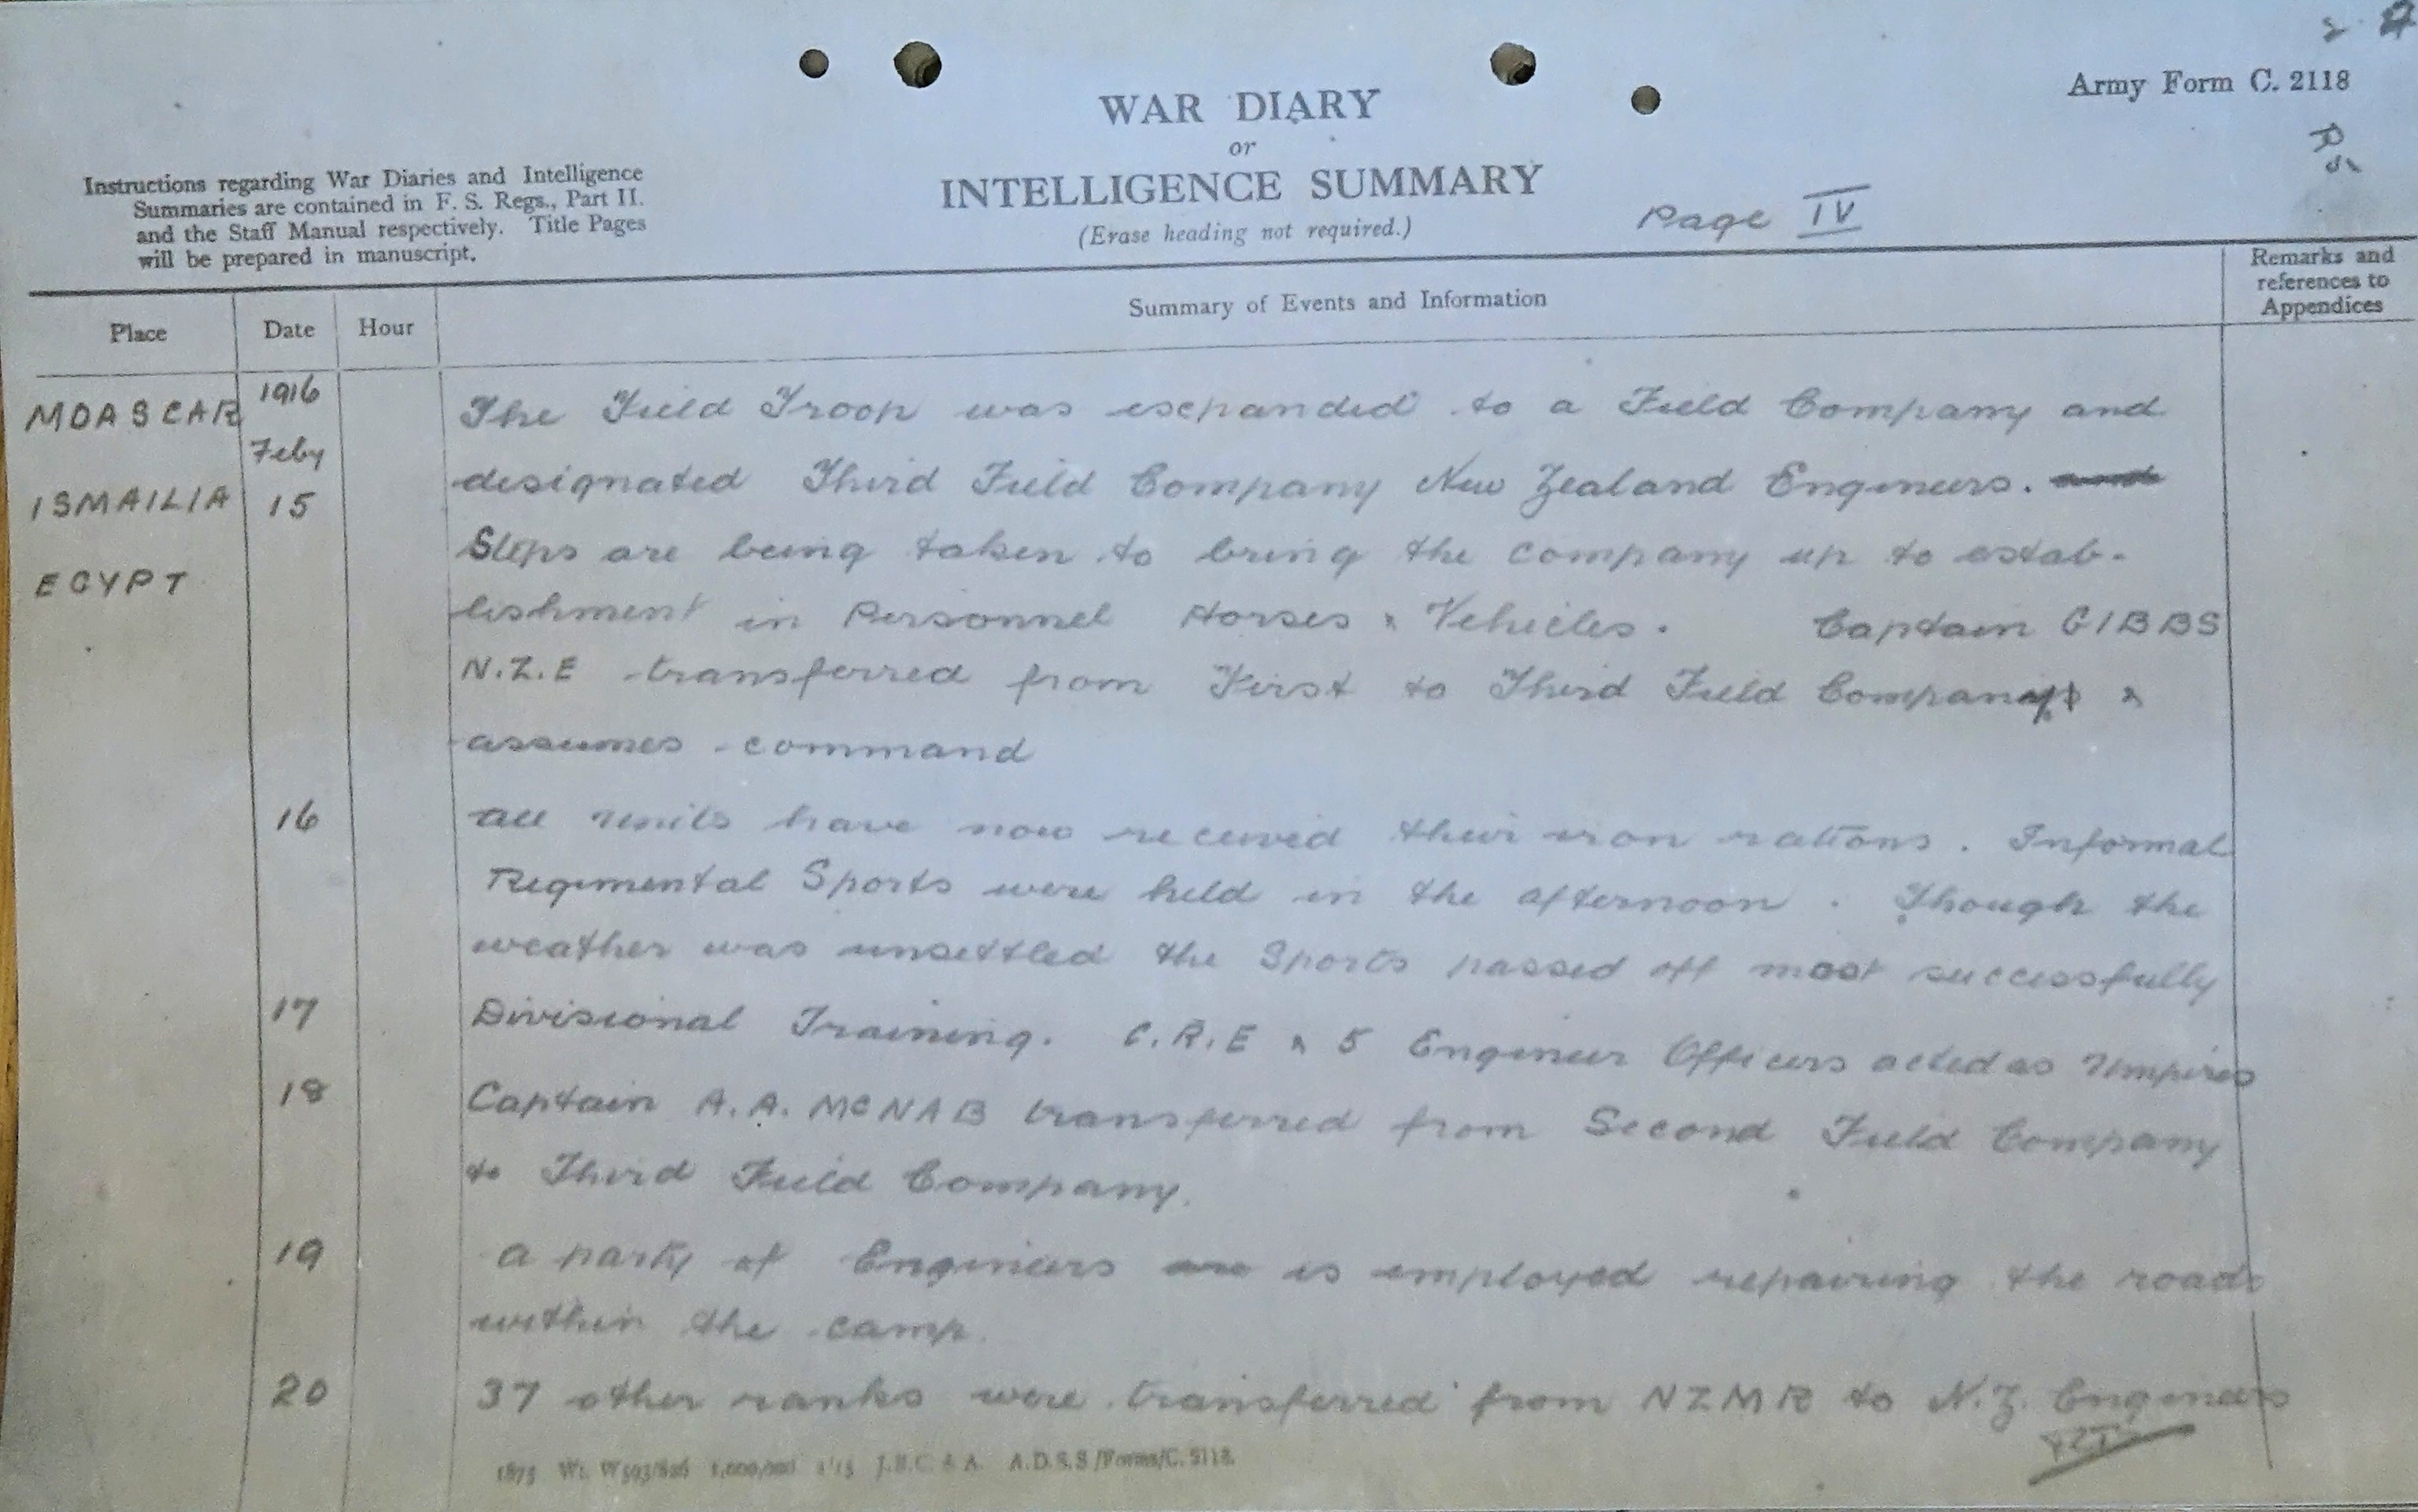 Army Form C. 2118
WAR DIARY
or
INTELLIGENCE SUMMARY
(Erase heading not required.)
Page IV
Instructions regarding War Diaries and Intelligence
Summaries are contained in F. S. Regs., Part II.
and the Staff Manual respectively. Title Pages
will be prepared in manuscript.
Place Date Hour Summary of Events and Information
Remarks and
references to
Appendices
MOASCAR
ISMAILIA
EGYPT
1916
Feby
15
The Field Troop was expanded to a Field Company and
designated Third Field Company New Zealand Engineers. and
Steps are being taken to bring the company up to estab-
lishment in Personnel Horses & Vehicles. Captain GIBBS
N.Z.E transferred from First to Third Field Company &
assumes command
16 All units have now received their iron rations. Informal
Regimental Sports were held in the afternoon. Though the
weather was unsettled the Sports passed off most successfully
17 Divisional Training. C.R.E & 5 Engineer Officers acted as Umpires
18 Captain A.A. McNAB transferred from Second Field Company
to Third Field Company.
19 A party of Engineers are is employed repairing the roads
within the camp.
20 37 other ranks were transferred from NZMR to N.Z. Engineers
1875 Wt. W593/826 1,000,000 J.B.C. & A. A.D.S.S./Forms/C. 2118.